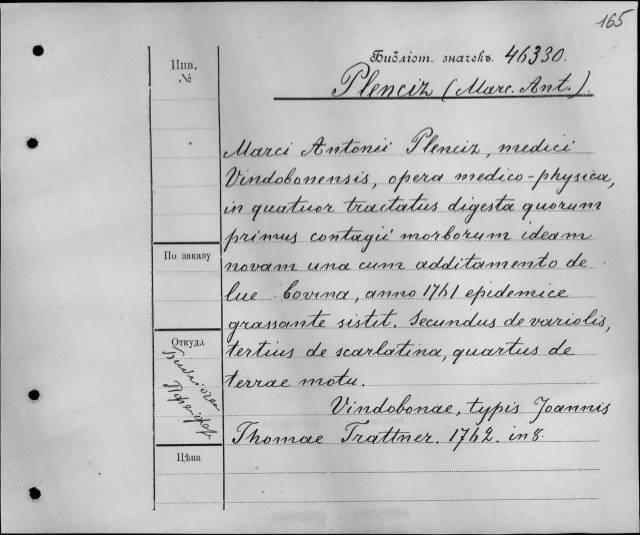 165
Библіот. значекъ. 46330.
Plenciz (Marc. Ant.).
Инв.
№
Marci Antonii Plenciz, medici
Vindobonensis, opera medico-physica,
in quatuor tractatus digesta quorum
primus contagii morborum ideam
novam una cum additamento de
lue bovina, anno 1761 epidemice
grassante sistit. Secundus de variolis,
tertius de scarlatina, quartus de
terrae motu.
Vindobonae, typis Joannis
Thomae Trattner. 1762. in 8.
По заказу
Откуда
Цѣна